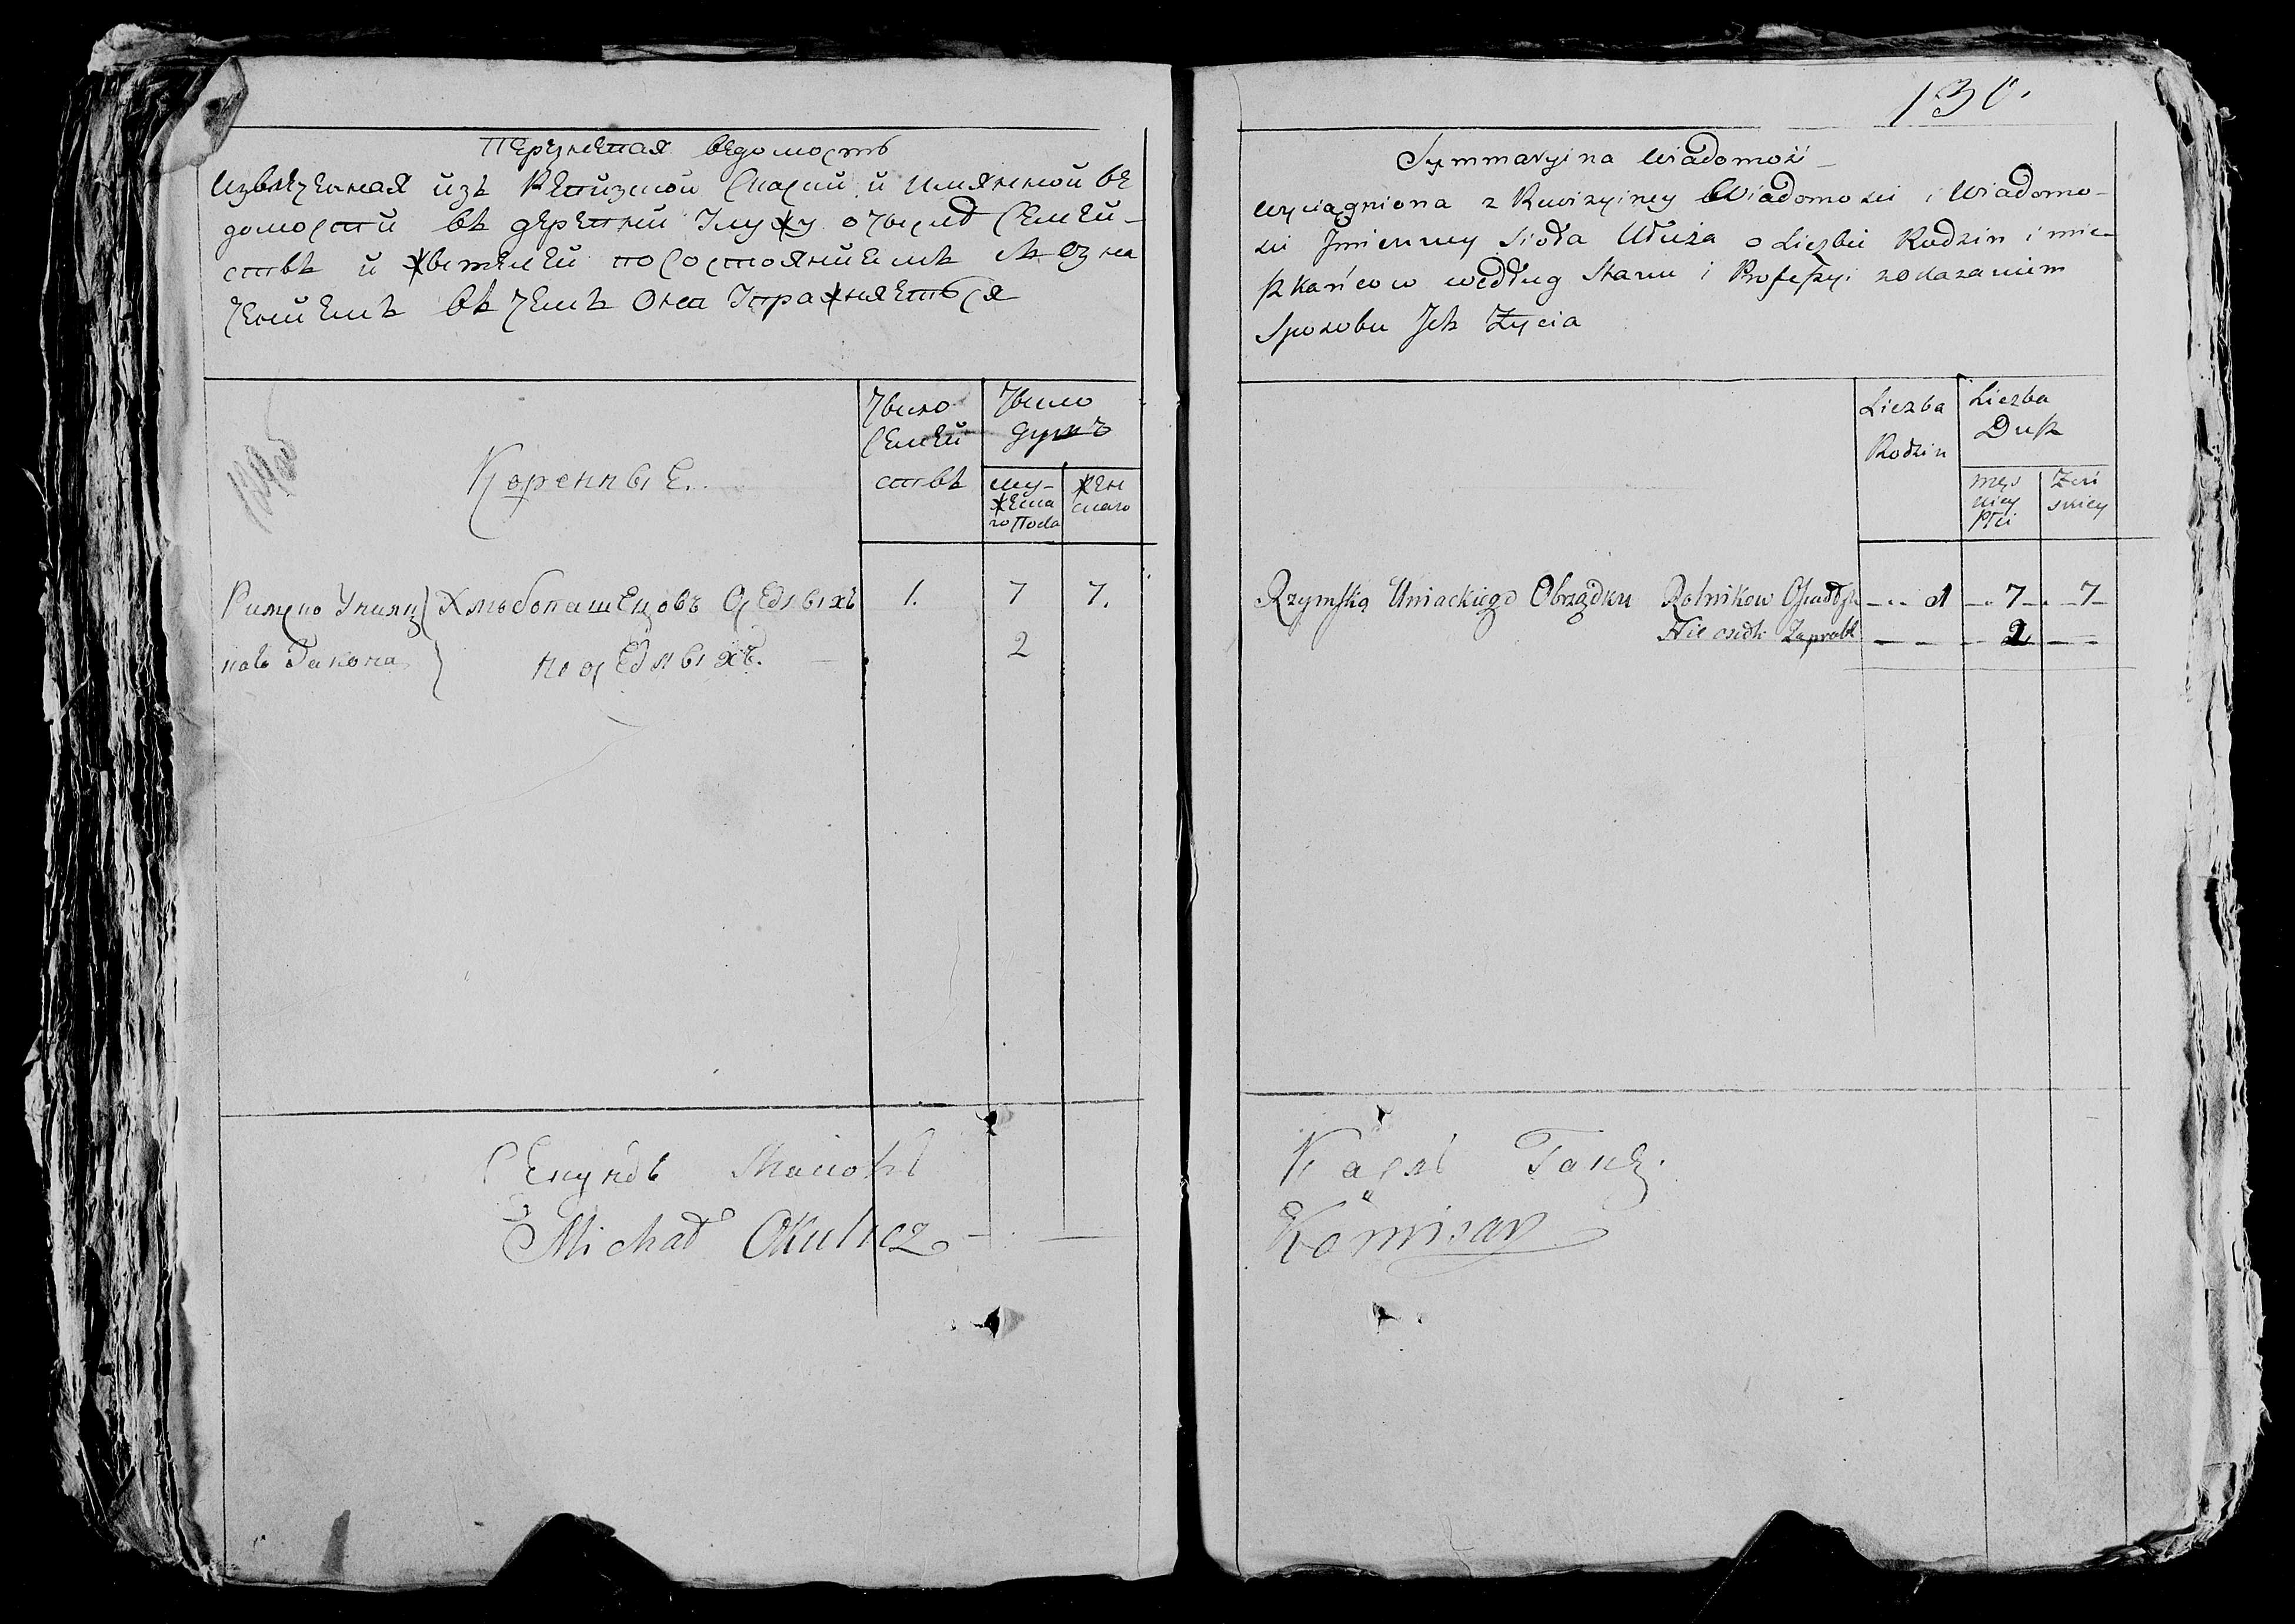 Перечневая ведомость
Извлеченная изъ Ревизской Скаски и имянной ве
домости въ деревни Улужу о числе Семей-
ствъ и жителей по Состоянiемъ съ озна
ченiемъ въ чемъ Они Упражняется
Число
Семей
ствъ
Число
душъ
Муж-
жеска
го Пола
жен
скаго
Коренные..
Римско Униат Хлебопашцовъ Оседлыхъ 1. 7 7.
скаго Закона не оседлыхъ. 2
Секундъ Маиоръ
Michał Okulicz
130.
Summaryina Wiadomość
wyciągniona z Rewizyiney Wiadomości i Wiadomo-
ści Jmienney Sioła Ułuża o Liczbie Rodzin i mie-
szkańcow według Stanu i Professyi z okazaniem
Sposobu Jch Życia
Liczba
Rodzin
Liczba
Dusz
męs
kiey
Płci
Żeń
skiey
Rzymsko Uniackiego Obrządku Rolnikow Osiadłych 1 7 7
Nie osiadł 2
Komisarz